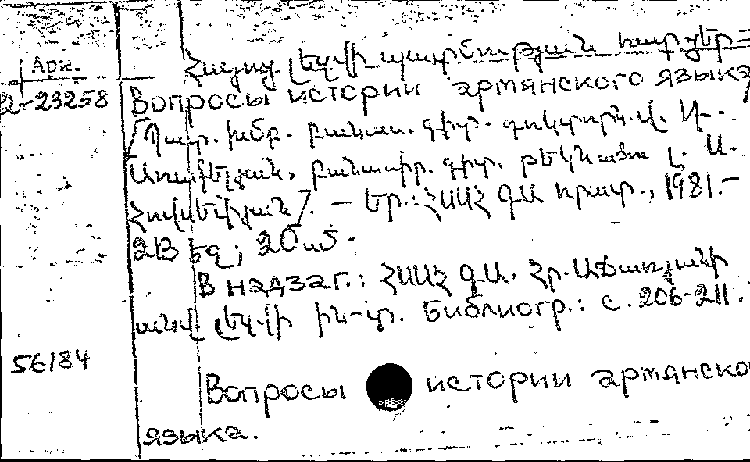 Հայոց լեզվի պատմության հարցեր =
Арм.
Д-23258 Вопросы истории армянского языка
/Պատ. խմբ. բանաս. գիտ. դոկտորն. Վ. Դ.
Առաքելյան, բանասիր. գիտ. թեկնածու Լ. Ա.
Հովսեփյան/. - Եր.: ՀՍՍՀ ԳԱ հրատ., 1981.-
213 էջ; 20 սմ.
В надзаг.: ՀՍՍՀ ԳԱ. Հր. Աճառյանի
անվ. լեզվի ին-տ. Библиогр.: с. 206-211.
56184
Вопросы истории армянско
языка.